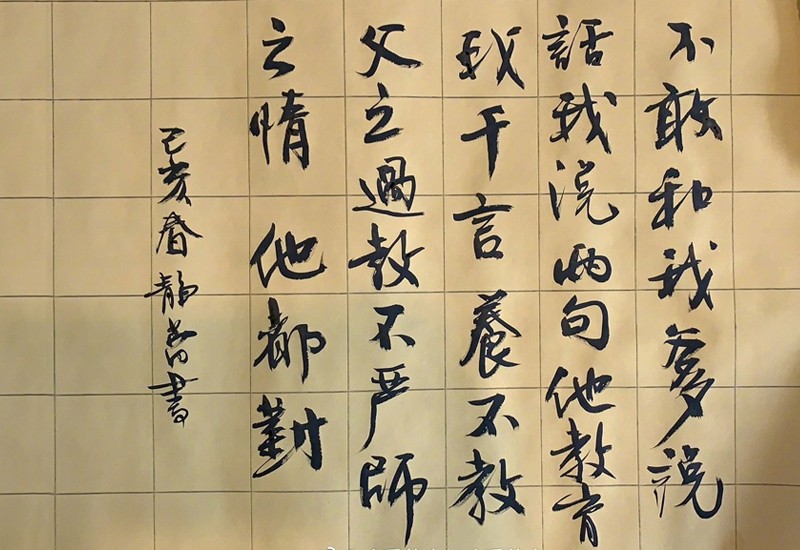 不敢和我爹説
話我説两句他教育
我千言養不教
父之過教不严師
之情 他都對
己亥春静
書